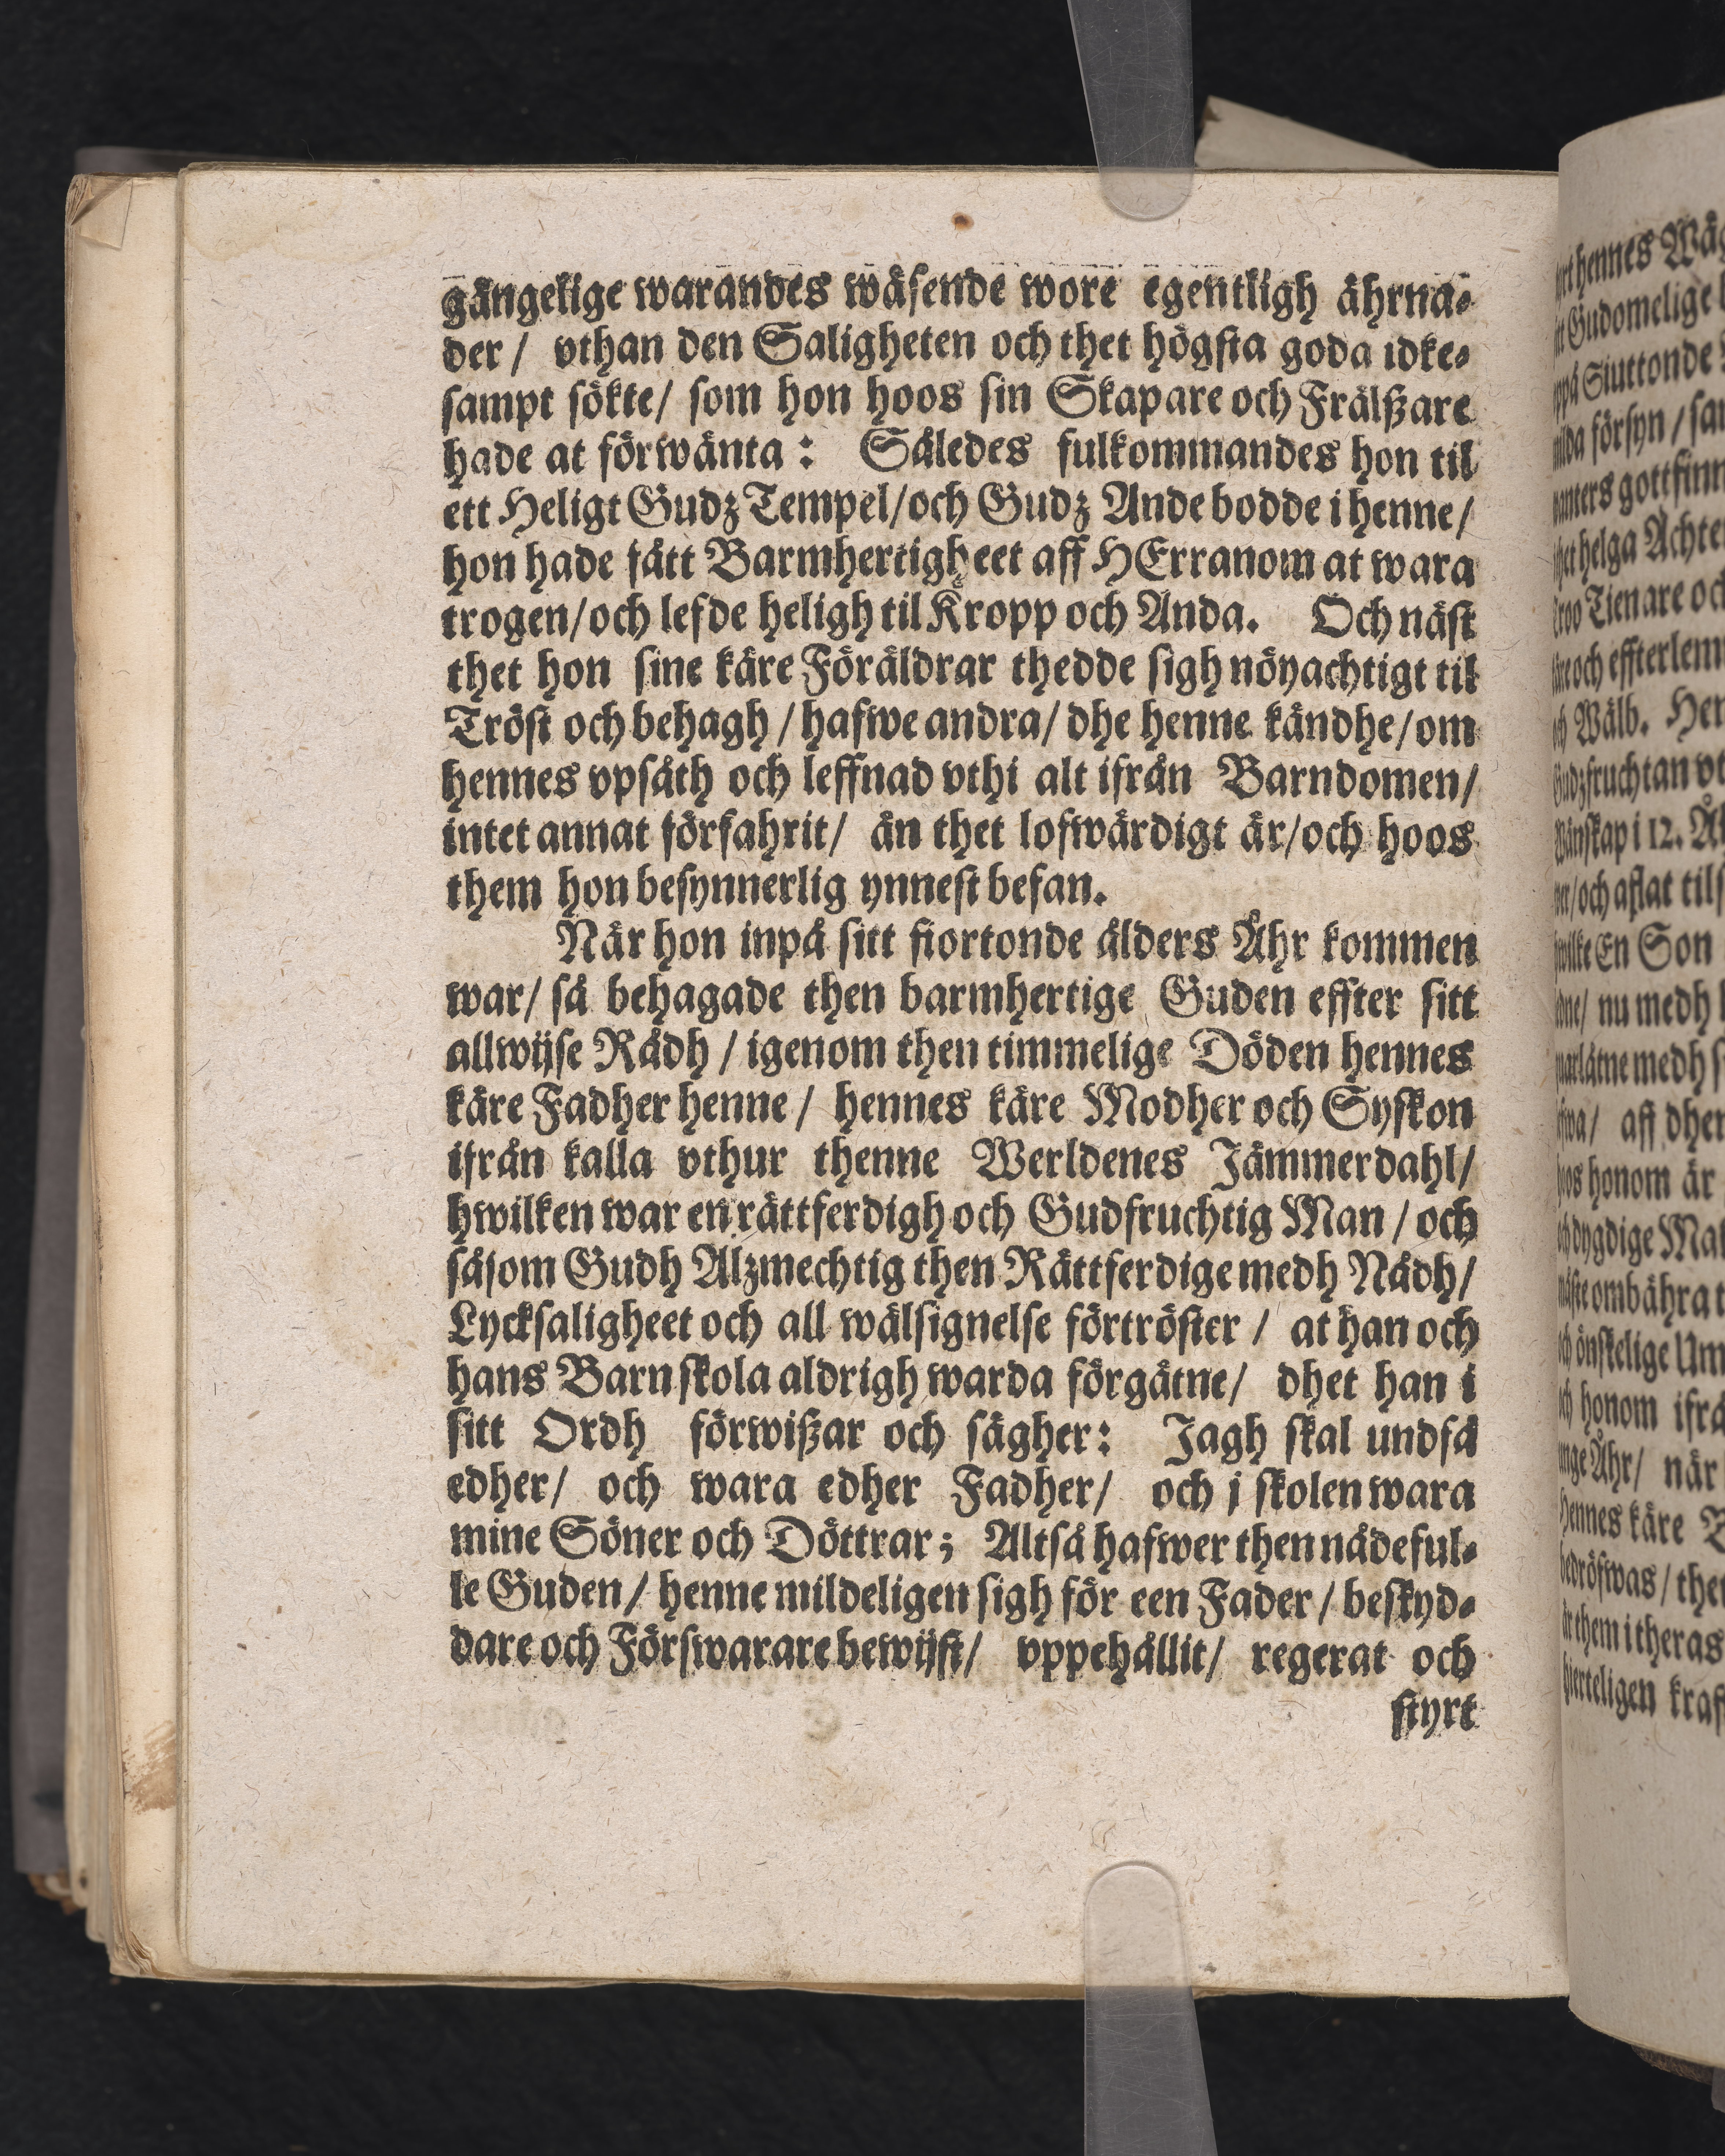 gångelige warandes wäsende wore egentligh ährna-
der / vthan den Saligheten och thet högsta goda idke-
sampt sökte/ som hon hoos sin Skapare och Frälßare
hade at förwänta: Således fulkommandes hon til
ett Heligt Gudz Tempel/och Gudz Ande bodde i henne/
hon hade fått Barmhertigheet aff HErranom at wara
trogen/och lefde heligh til Kropp och Anda. Och näst
thet hon sine käre Föräldrar thedde sigh nöyachtigt til
Tröst och behagh / hafwe andra/ dhe henne kändhe/om
hennes vpsåth och leffnad vthi alt ifrån Barndomen/
intet annat förfahrit/ än thet lofwärdigt är/och hoos
them hon besynnerlig ynnest befan.
När hon inpå sitt fiortonde ålders Åhr kommen
war/ så behagade then barmhertige Guden effter sitt
allwijse Rådh / igenom then timmelige Döden hennes
käre Fadher henne / hennes käre Modher och Syskon
ifrån kalla vthur thenne Werldenes Jämmerdahl/
hwilken war en rättferdigh och Gudfruchtig Man / och
såsom Gudh Alzmechtig then Rättferdige medh Nådh/
Lycksaligheet och all wälsignelse förtröster / at han och
hans Barn skola aldrigh warda förgätne/ dhet han i
sitt Ordh förwißar och sägher: Jagh skal undfå
edher/ och wara edher Fadher/ och j skolen wara
mine Söner och Döttrar; Altså hafwer then nådeful-
le Guden/ henne mildeligen sigh för een Fader / beskyd-
dare och Förswarare bewijst/ vppehållit/ regerat och
styrt
hennes
Gudomelige
Siuttonde
försyn /
helga
Tienare
och
Wälb.
i 12.
En Son
nu medh
medh
aff
honom är
honom ifrå
Åhr/ när
käre
them i theras